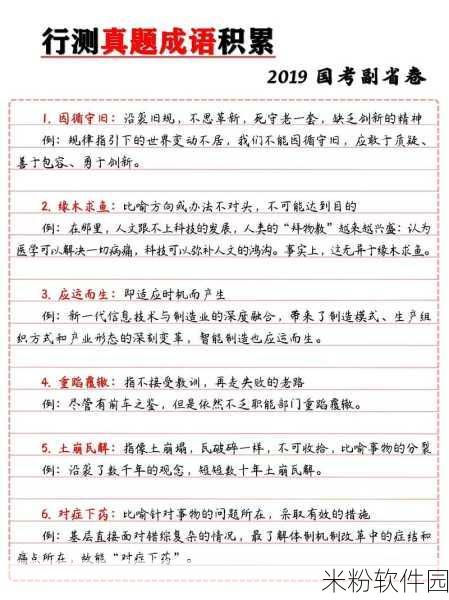 行测真题成语积累
2019 国考副省卷
1. 因循守旧：沿袭旧规，不思革新，死守老一套，缺乏创新的精神
例：规律指引下的世界变动不居，我们不能因循守旧，应敢于质疑、
善于包容、勇于创新。
2. 缘木求鱼：比喻方向或办法不对头，不可能达到目的
例：在那里，人文跟不上科技的发展，人类的“拜物教”越来越兴盛：认为
医学可以解决一切病痛，科技可以弥补人文的鸿沟。事实上，这无异于缘木求鱼。
3. 应运而生：即适应时机而产生
例：新一代信息技术与制造业的深度融合，带来了制造模式、生产组
织方式和产业形态的深刻变革，智能制造也应运而生。
4. 重蹈覆辙：指不接受教训，再走失败的老路
例：尽管有前车之鉴，但是依然不乏职能部门重蹈覆辙。
5. 土崩瓦解：指像土崩塌，瓦破碎一样，不可收拾，比喻事物的分裂
例：沿袭了数千年的观念，短短数十年土崩瓦解。
6. 对症下药：比喻针对事物的问题所在，采取有效的措施
例：基层直接面对错综复杂的情况，最了解体制机制改革中的症结和
痛点所在，故能“对症下药”。
米粉软件园